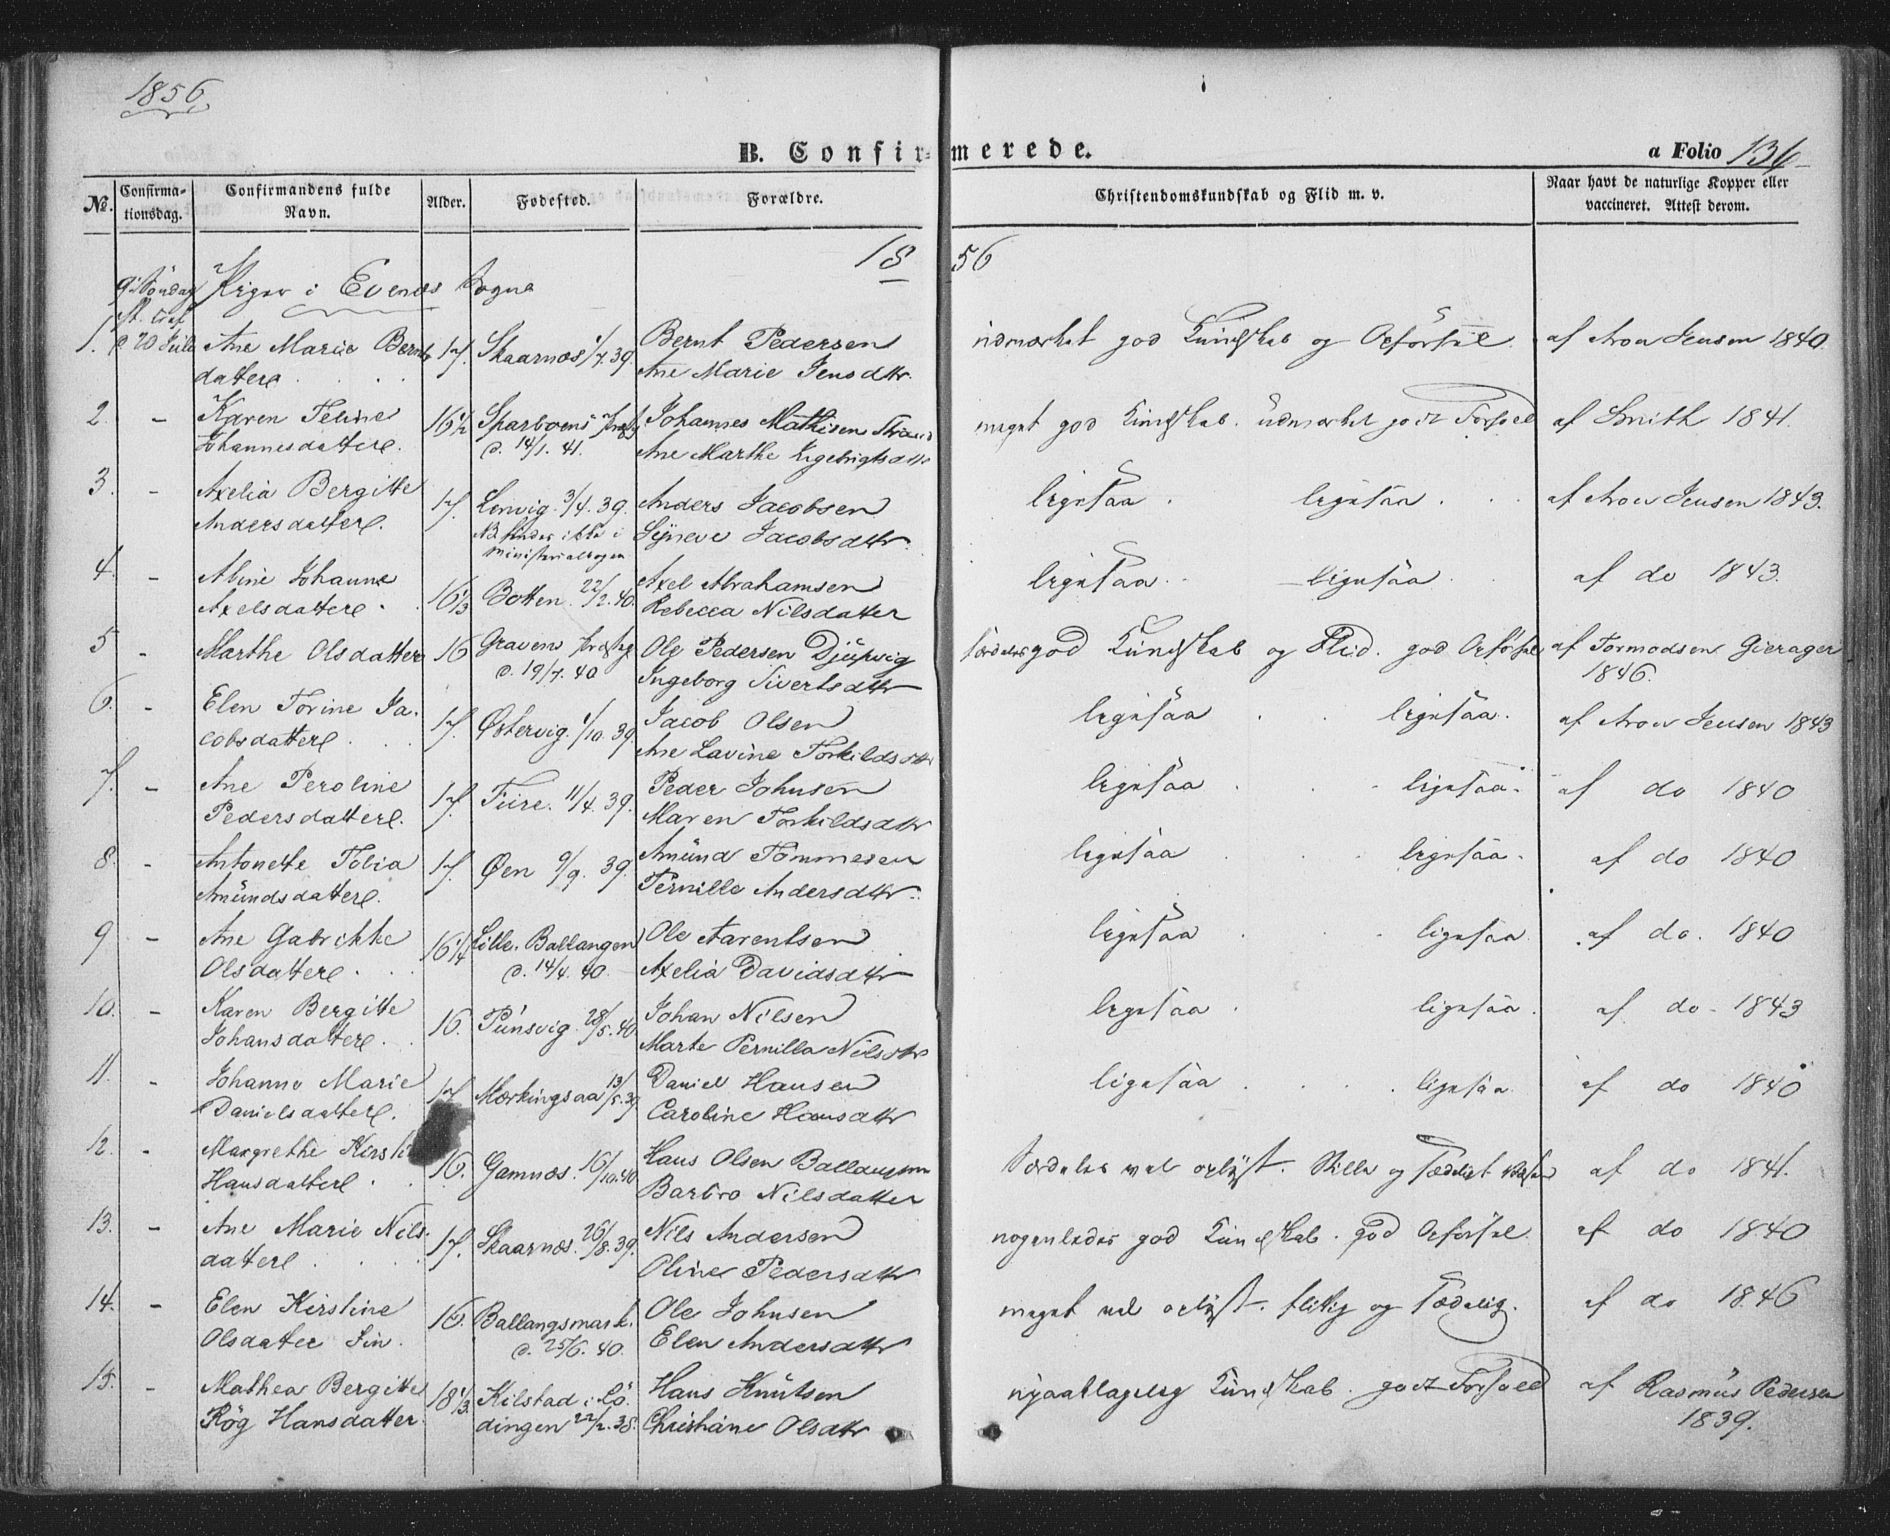 1856
B. Confirmerede.
a Folio 136
No. Confirmationsdag. Confirmandens fulde Navn. Alder. Fødested. Forældre. Christendomskundskab og Flid m. v. Naar havt de naturlige Kopper eller vaccineret. Attest derom.
1856
9. Søndag Piger i Evenæs Sogn
d. 20 Juli
1. Ane Marie Bernts 17. Skaarnæs 1/7 39 Bernt Pedersen udmærket god Kundskab og Opførsel. af Aron Jensen 1840
datter. Ane Marie Jensdttr.
2. - Karen Feline 16 1/2 Sparboens Prgj Johannes Mathisen Strand meget god Kundskab. udmærket godt Forhold af Smith 1841.
Johannesdatter. d. 14/1. 41. Ane Marthe Ingebrigtsdttr
3. - Axelia Bergitte 17. Lenvig 3/4. 39. Anders Jacobsen ligesaa . ligesaa . af Aron Jensen 1843.
Andersdatter. NB findes ikke i Synneve Jacobsdttr.
Ministerialbogen
4. - Abine Johanna 16 1/3 Botten 22/2. 40. Axel Abrahamsen ligesaa . ligesaa af do 1843.
Axelsdatter . Rebecca Nilsdatter
5 - Marthe Olsdatter 16 Gravens Præstgj Ole Pedersen Djupvig særdeles god Kundskab og Flid. god Opførsel af Tormodsen Gierager
d. 19/7. 40 Ingeborg Sivertsdttr 1846.
6. - Elen Torine Ja- 17. Østervig. 1/10. 39. Jacob Olsen ligesaa . ligesaa. af Aron Jensen 1843
cobsdatter . Ane Lavine Torkildsdttr
7. - Ane Peroline 17. Feire. 11/4. 39. Peder Johnsen ligesaa . ligesaa. af do 1840
Pedersdatter. Maren Torkildsdttr
8. - Antonette Tolia 17. Øen 9/9. 39. Amund Tommesen ligesaa . ligesaa. af do 1840
Amundsdatter. Pernille Andersdttr.
9 - Ane Gabrikke 16 1/4 Lille Ballangen Ole Aarentsen ligesaa . ligesaa af do. 1840
Olsdatter . d. 14/4. 40. Axelia Davidsdttr
10. - Karen Bergitte 16. Punsvig. 28/5. 40. Johan Nilsen ligesaa . ligesaa . af do - 1843
Johansdatter . Marte Pernilla Nilsdttr
11. - Johanne Marie 17 Mørkingsaa 13/5. 39 Daniel Hansen ligesaa . ligesaa af do 1840
Danielsdatter. Caroline Hansdttr
12. - Margrethe Kirsti 16. Gamnæs. 16/10. 40 Hans Olsen Ballangen Særdeles vel oplyst. stille og sædeligt af do 1841.
Hansdatter . Barbro Nilsdatter
13. - Ane Marie Nils- 17. Skaarnæs. 26/8. 39. Nils Andersen nogenledes god Kundskab. god Opførsel af do 1840
datter . Oline Pedersdttr
14. - Elen Kirstine 16. Ballangsmark. Ole Johnsen meget vel oplyst. flittig og sædelig. af do 1846
Olsdatter Fin. d. 25/6. 40. Elen Andersdttr
15. - Mathea Bergitte 18 1/3 Kilstad i Lö- Hans Knutsen Kundskab. godt Forhold af Rasmus Pedersen
Røg Hansdatter. dingen 22/2. 38. Christiane Olsdttr 1839.